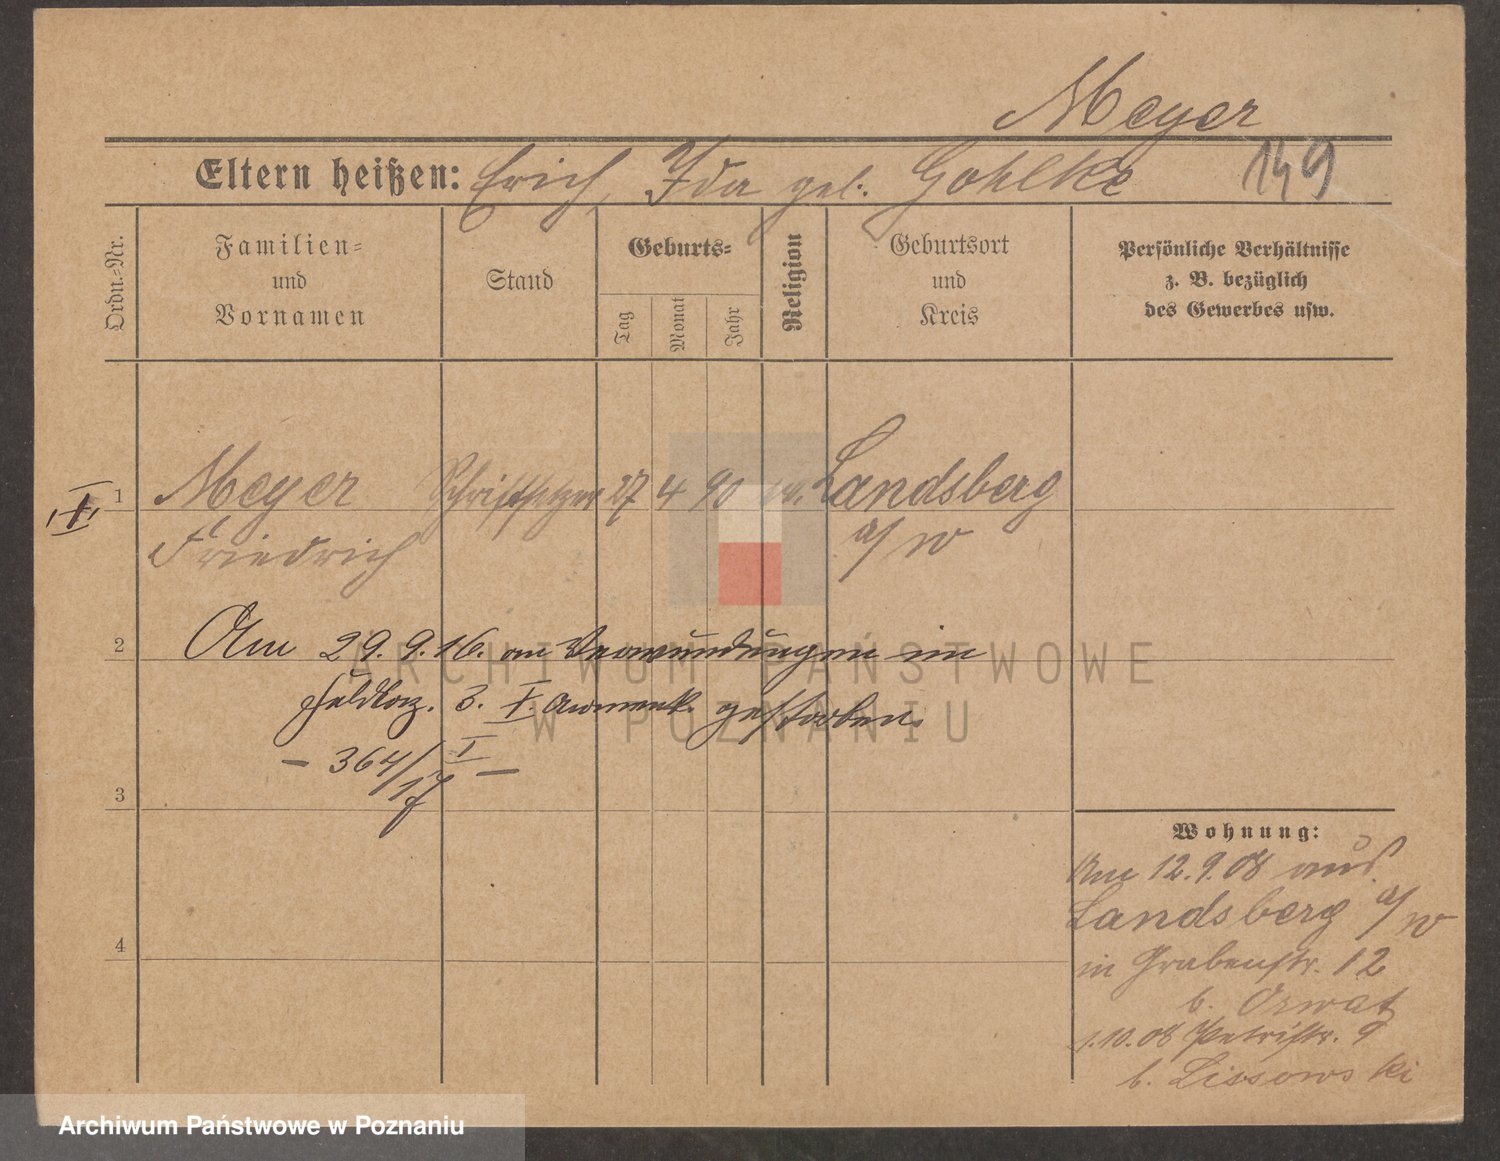 Meyer
Eltern heißen: Erich, Ida geb. Gohlke 149
Ordn.=Nr.
Familien=
und
Vornamen
Stand
Geburts=
Tag
Monat
Jahr
Religion
Geburtsort
und
Kreis
Persönliche Verhältnisse
z. B. bezüglich
des Gewerbes usw.
1 Meyer Schriftsetzer 27 4 90 ev. Landsberg
Friedrich a/W
2 Am 29.9.16. an Verwundungen im
Feldlaz. 3. I. Armeek. gestorben.
- 364/17 I -
3
4
Wohnung:
Am 12.9.08 aus
Landsberg a/W
in Grabenstr. 12
b. Orwat
1.10.08 Petristr. 9
b. Lissowski
ARCHIWUM PAŃSTWOWE
W POZNANIU
Archiwum Państwowe w Poznaniu